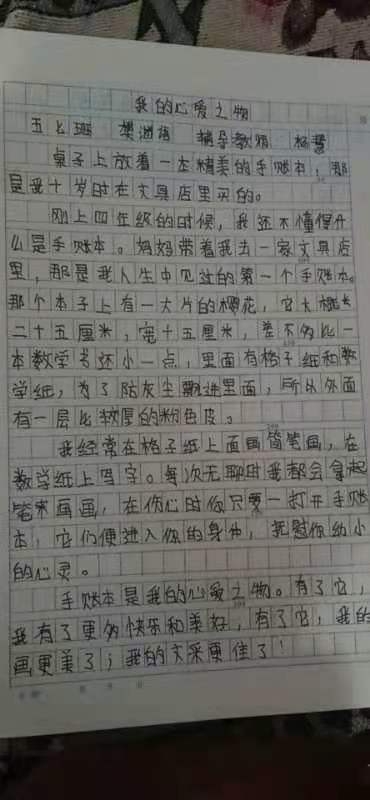 我的心爱之物
五七班 樊 辅导教师 杨慧
桌子上放着一本精美的手账本,那
是我十岁时在文具店里买的。
刚上四年级的时候,我还不懂得什
么是手账本。妈妈带着我去一家文具店
里,那是我人生中见过的第一个手账本。
那个本子上有一大片的樱花,它大概长
二十五厘米,宽十五厘米,差不多比一
本数学书还小一点,里面有格子纸和数
学纸,为了防灰尘飘进里面,所以外面
有一层比较厚的粉色皮。
我经常在格子纸上面画简笔画,在
数学纸上写字。每次无聊时我都会拿起
笔来画画,在伤心时你只要一打开手账
本,它们便进入你的身体,抚慰你幼小
的心灵。
手账本是我的心爱之物。有了它,
我有了更多快乐和美好,有了它,我的
画更美了;我的文采更佳了!